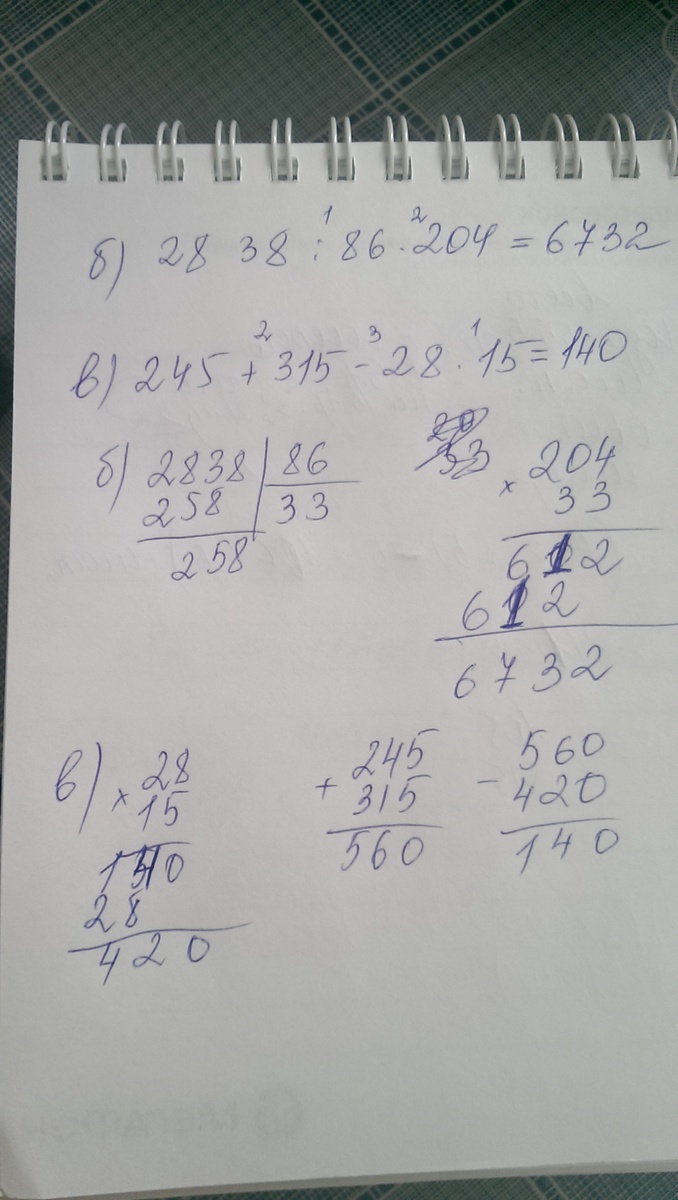 1 2
б) 28 38 : 86 · 204 = 6732
2 3 1
в) 245 + 315 - 28 · 15 = 140
б) 2838 | 86
258 | 33
258
× 204
33
612
612
6732
в) × 28
15
140
28
420
+ 245
315
560
- 560
420
140